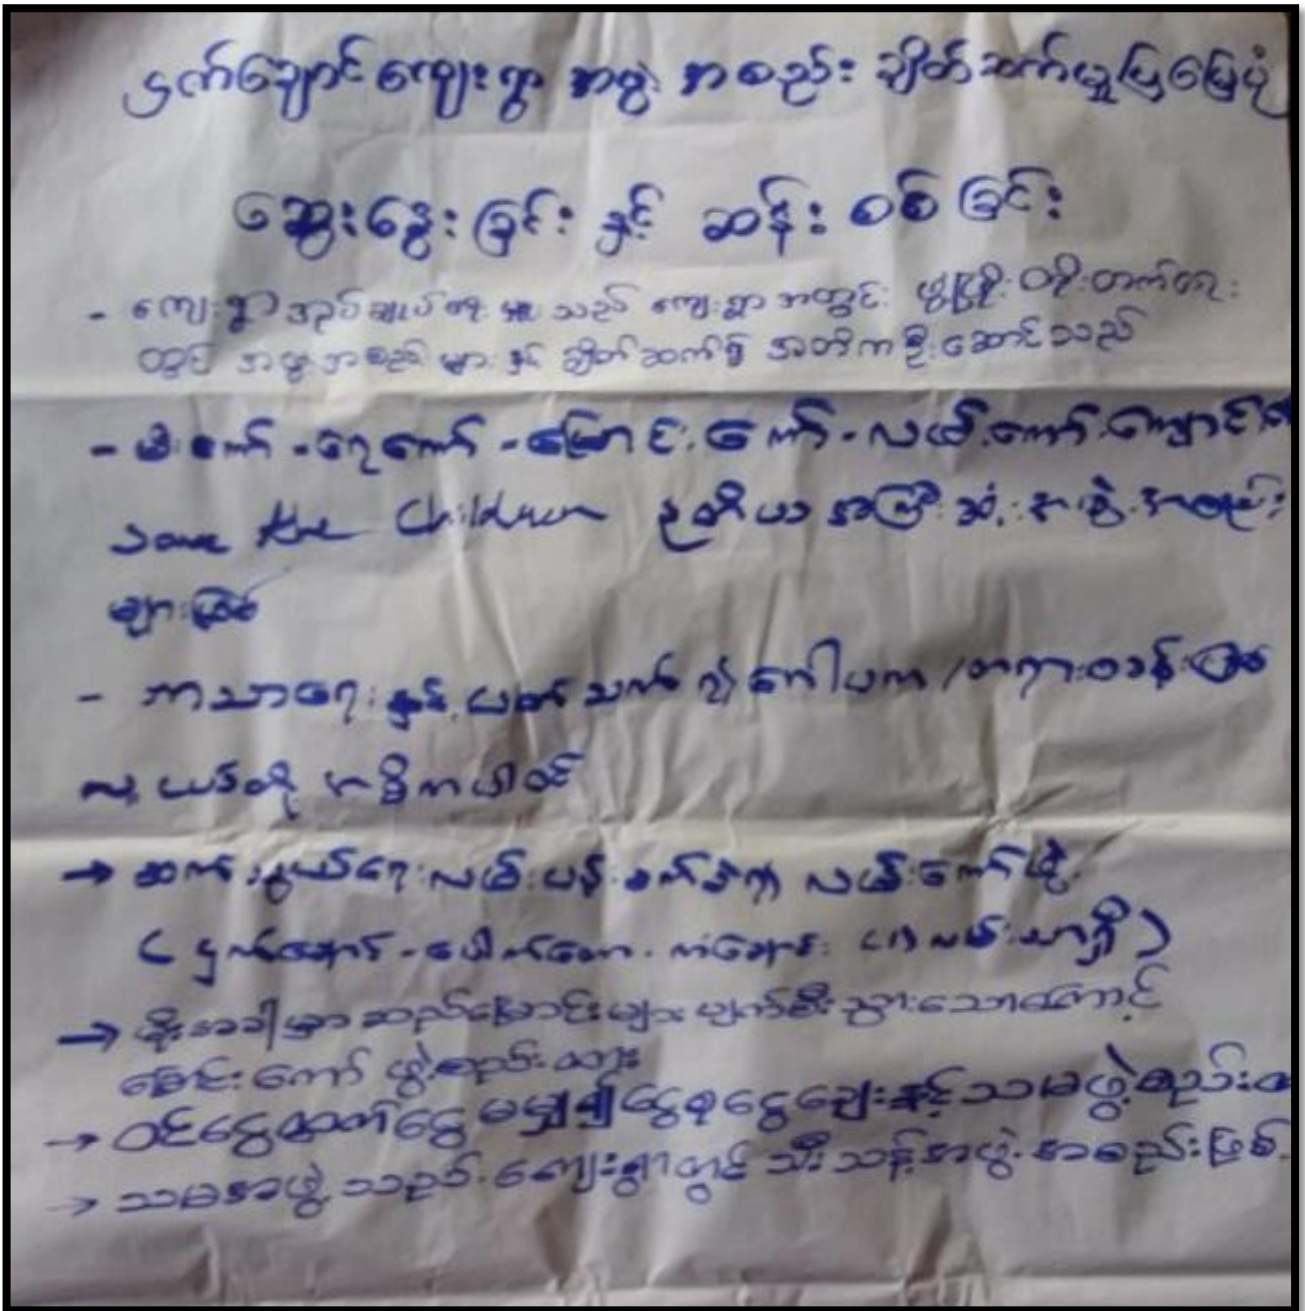 ငှက်ချောင်ကျေးရွာ အဖွဲ့ အစည်း ချိတ်ဆက်မှုပြမြေပုံ
ဆွေးနွေးခြင်း နှင့် ဆန်းစစ်ခြင်း
- ကျေးရွာအုပ်ချုပ်ရေးမှူးသည် ကျေးရွာအတွင်း ဖွံ့ဖြိုးတိုးတက်ရေး
တွင် အဖွဲ့အစည်းများနှင့် ချိတ်ဆက်၍ အဓိကဦးဆောင်သည်
- မီးကော် - ရေကော် - မြောင်းကော် - လမ်းကော်
Save the Children ဒုတိယအကြီးဆုံးအဖွဲ့အစည်း
များဖြစ်
- ဘာသာရေးနှင့်ပတ်သက်၍ ဂေါပက
→ ဆက်သွယ်ရေးလမ်းပန်းခက်ခဲ၍ လမ်းကော်ဖွဲ့
→ မိုးအခါမှာ ဆည်မြောင်းများပျက်စီးသွားသောကြောင့်
မြောင်းကော် ဖွဲ့စည်းထား
→ ဝင်ငွေထွက်ငွေ မမျှ၍ ငွေစုငွေချေးနှင့်သမဖွဲ့စည်း
→ သမအဖွဲ့သည် ကျေးရွာတွင် သီးသန့်အဖွဲ့အစည်းဖြစ်